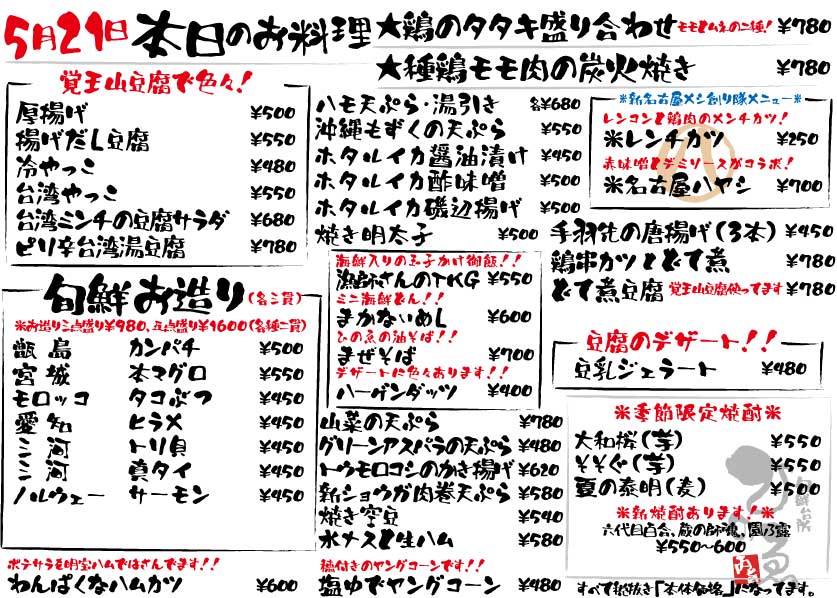 5月21日 本日のお料理
★鶏のタタキ盛り合わせ モモとムネの二種! ¥780
★種鶏モモ肉の炭火焼き ¥780
覚王山豆腐で色々!
厚揚げ ¥500
揚げだし豆腐 ¥550
冷やっこ ¥480
台湾やっこ ¥550
台湾ミンチの豆腐サラダ ¥680
ピリ辛台湾湯豆腐 ¥780
旬鮮お造り(各三貫)
※お造り三点盛り¥980、五点盛り¥1600(各種二貫)
甑島 カンパチ ¥500
宮城 本マグロ ¥550
モロッコ タコぶつ ¥450
愛知 ヒラメ ¥450
三河 トリ貝 ¥450
三河 真タイ ¥450
ノルウェー サーモン ¥450
ポテサラを明宝ハムではさんでます!!
わんぱくなハムカツ ¥600
ハモ天ぷら・湯引き 各¥680
沖縄もずくの天ぷら ¥550
ホタルイカ醤油漬け ¥450
ホタルイカ酢味噌 ¥500
ホタルイカ磯辺揚げ ¥500
焼き明太子 ¥500
海鮮入りの玉子かけ御飯!!
漁師さんのTKG ¥550
ミニ海鮮どん!!
まかないめし ¥600
ひのゑの油そば!!
まぜそば ¥700
デザートに色々あります!!
ハーゲンダッツ ¥400
山菜の天ぷら ¥780
グリーンアスパラの天ぷら ¥480
トウモロコシのかき揚げ ¥620
新ショウガ肉巻天ぷら ¥580
焼き空豆 ¥540
水ナスと生ハム ¥580
穂付きのヤングコーンです!!
塩ゆでヤングコーン ¥480
※新名古屋メシ創り隊メニュー※
レンコンと鶏肉のメンチカツ!
※レンチカツ ¥250
赤味噌とデミソースがコラボ!
※名古屋ハヤシ ¥700
手羽先の唐揚げ(3本) ¥450
鶏串カツとどて煮 ¥780
どて煮豆腐 覚王山豆腐使ってます ¥780
豆腐のデザート!!
豆乳ジェラート ¥480
※季節限定焼酎※
大和桜(芋) ¥550
そそぐ(芋) ¥550
夏の泰明(麦) ¥500
※新焼酎あります!※
六代目百合、蔵の師魂、園乃露
¥550~600
旬鮮台所
すべて税抜き「本体価格」になってます。